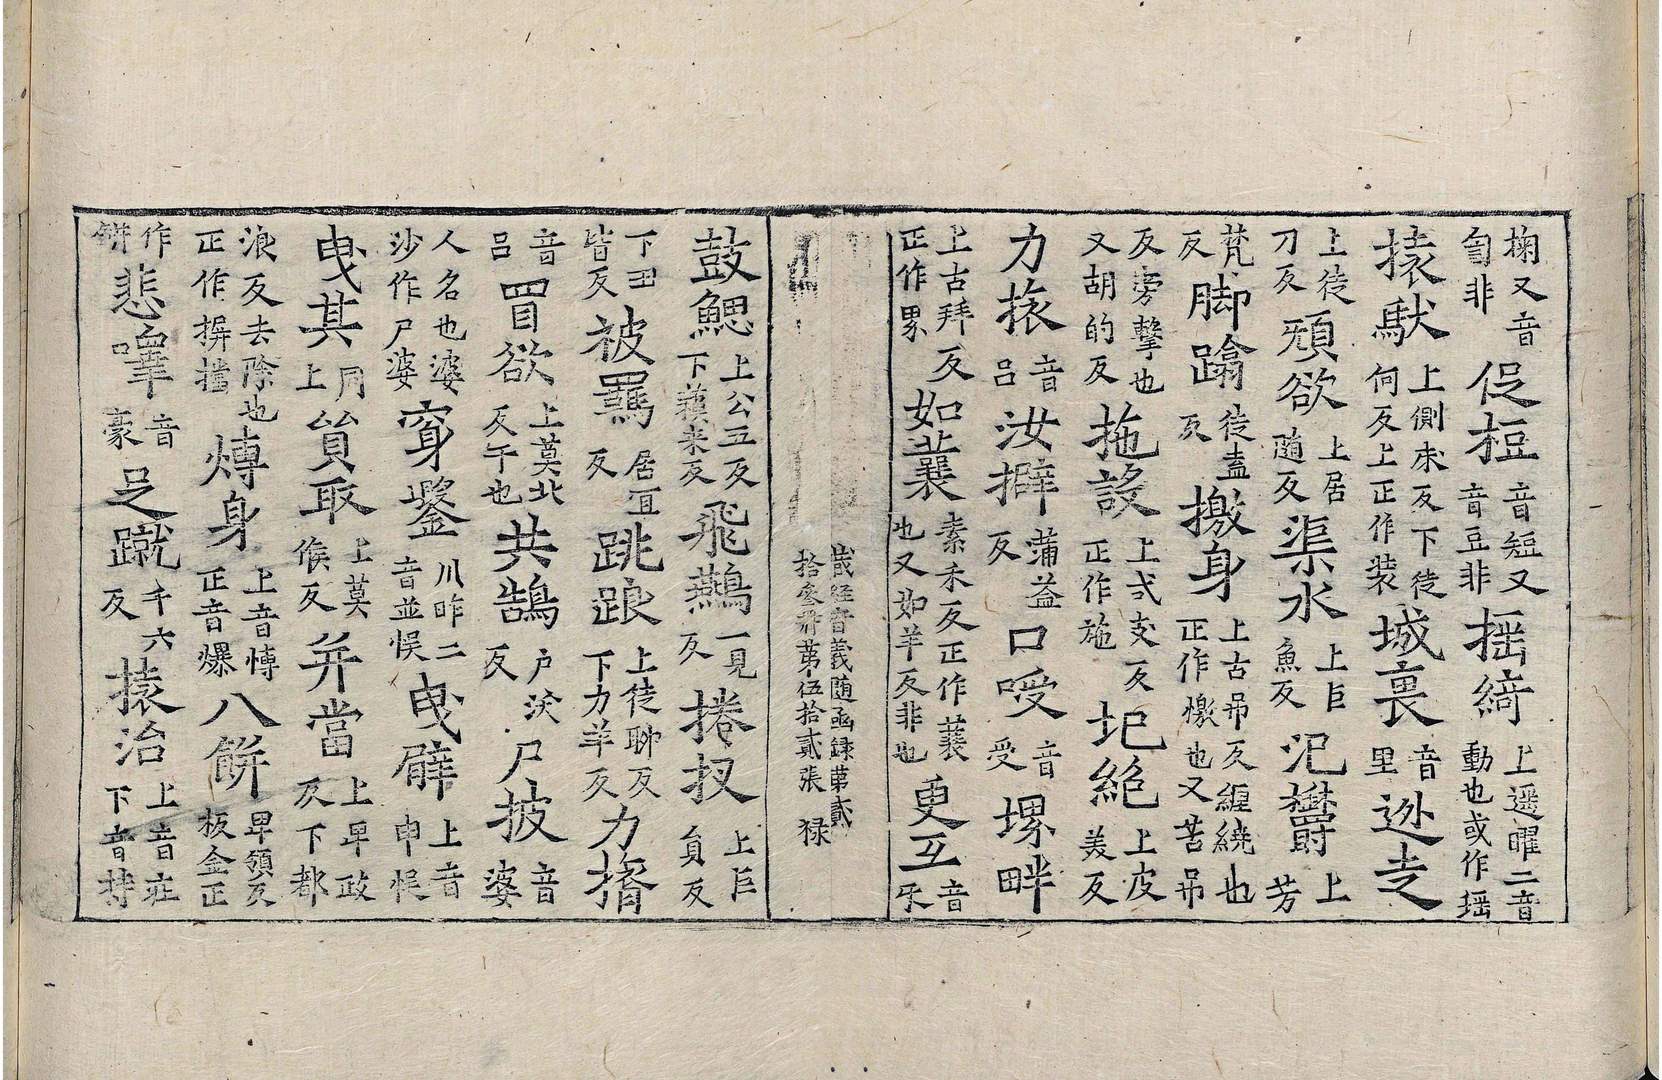 掬又音匐非 促梪音短又音豆非 揺綺上遥曜二音動也或作瑶
㨮馱上側床反下徒何反上正作装 城裏音里 迯走
上徒刀反 頑欲上居随反 渠水上巨魚反 汜欝上芳
梵反 脚蹹徒盍反 撽身上古吊反纒繞也正作憿也又苦吊
反旁擊也又胡的反 拖設上式支反正作施 圮絶上皮美反
力㨖音吕 汝擗蒲益反 口噯音受 堺畔
上古拜反正作界 如蓑素禾反正作蓑也又如羊反非也 更互音牙
藏經音義随函録第貳拾叁册第伍拾貳張 禄
鼓鰓上公五反下蘓来反 飛鷰一見反 捲扠上巨員反
下丑皆反 被羈居宜反 跳踉上徒聊反下力羊反 力揝
音吕 冐欲上莫北反干也 共鵠户沃反 尸披音婆
人名也婆沙作尸婆 穿鑿川昨二音並悮 曳廦上音申悮
曳其同上 貿取上莫候反 并當上卑政反下都
浪反去除也正作摒擋 煿身上音愽正音爆 八餅卑領反板金正
作鉼 悲㘁音豪 足蹴千六反 㨮治上音庄下音持